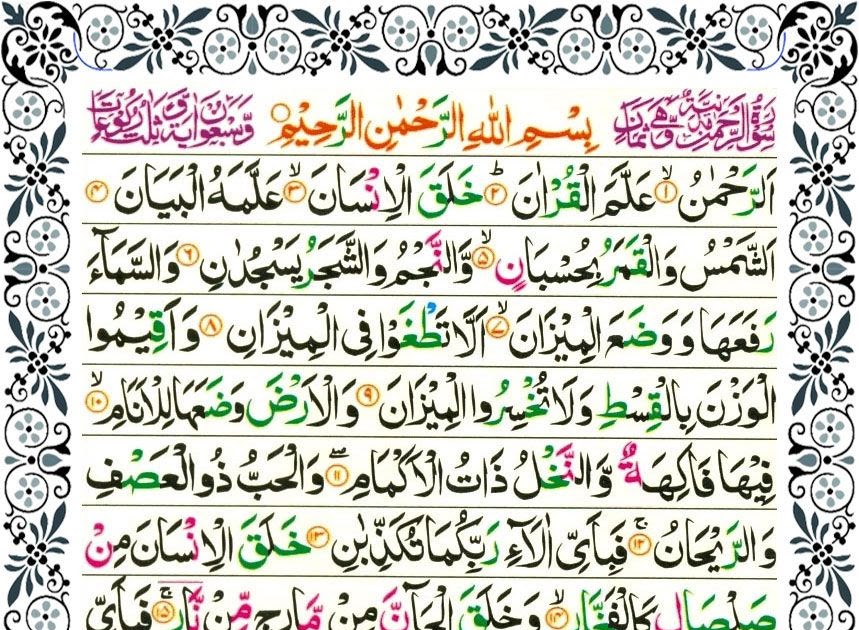 سورة الرحمن مدنية وهي ثمان بسم الله الرحمن الرحيم وسبعون اية وثلث ركوعات
اَلرَّحْمٰنُ ۙ﴿۱﴾ عَلَّمَ الْقُرْاٰنَ ؕ﴿۲﴾ خَلَقَ الْاِنْسَانَ ۙ﴿۳﴾ عَلَّمَهُ الْبَيَانَ ﴿۴﴾
اَلشَّمْسُ وَالْقَمَرُ بِحُسْبَانٍ ۙ﴿۵﴾ وَّالنَّجْمُ وَالشَّجَرُ يَسْجُدٰنِ ﴿۶﴾ وَالسَّمَآءَ
رَفَعَهَا وَوَضَعَ الْمِيْزَانَ ۙ﴿۷﴾ اَلَّا تَطْغَوْا فِى الْمِيْزَانِ ﴿۸﴾ وَاَقِيْمُوا
الْوَزْنَ بِالْقِسْطِ وَلَا تُخْسِرُوا الْمِيْزَانَ ﴿۹﴾ وَالْاَرْضَ وَضَعَهَا لِلْاَنَامِ ۙ﴿۱۰﴾
فِيْهَا فَاكِهَةٌ وَّالنَّخْلُ ذَاتُ الْاَكْمَامِ ۖ﴿۱۱﴾ وَالْحَبُّ ذُو الْعَصْفِ
وَالرَّيْحَانُ ۚ﴿۱۲﴾ فَبِاَىِّ اٰلَآءِ رَبِّكُمَا تُكَذِّبٰنِ ﴿۱۳﴾ خَلَقَ الْاِنْسَانَ مِنْ
صَلْصَالٍ كَالْفَخَّارِ ۙ﴿۱۴﴾ وَخَلَقَ الْجَآنَّ مِنْ مَّارِجٍ مِّنْ نَّارٍ ۚ﴿۱۵﴾ فَبِاَىِّ